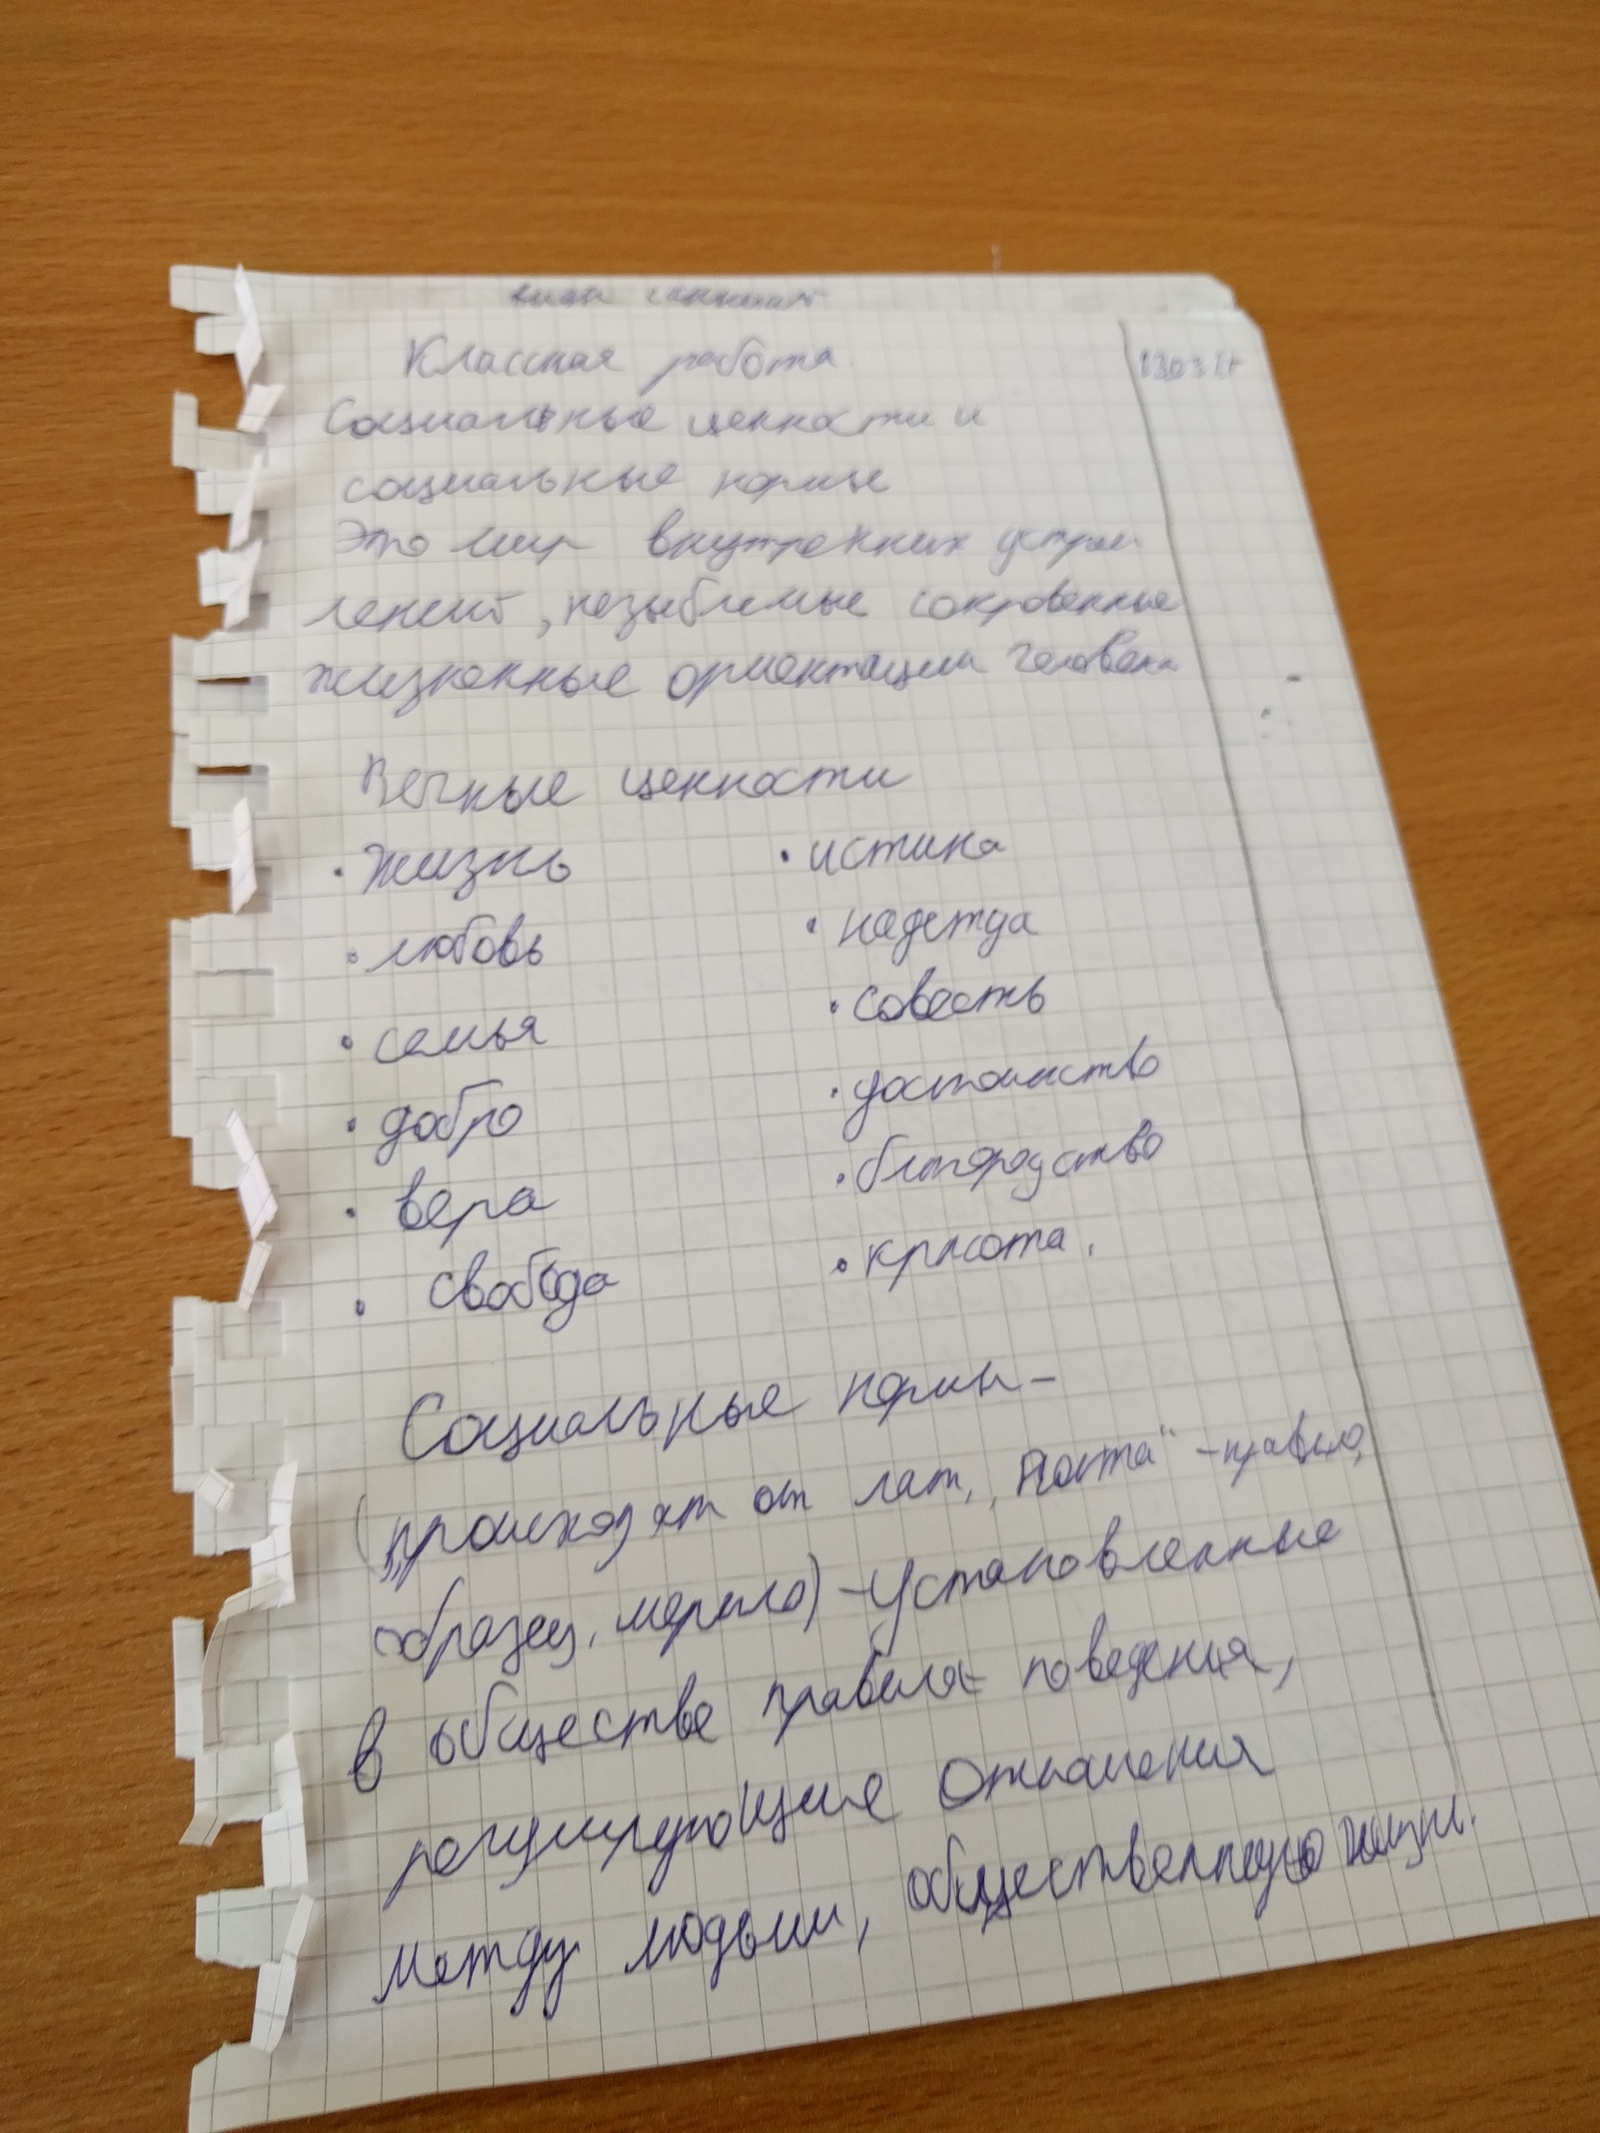 Классная работа
Социальные ценности и
социальные нормы
Это мир внутренних устрем
лений, незыблемые сокровенные
жизненные ориентации человека
Вечные ценности
· жизнь
· истина
· любовь
· надежда
· семья
· совесть
· добро
· достоинство
· вера
· блгородство
· свобода
· красота.
Социальные нормы –
(происходят от лат, „ "– правило,
образец, мерило) – установленные
в обществе правила поведения,
регулирующие отношения
между людьми, общественную жизнь.